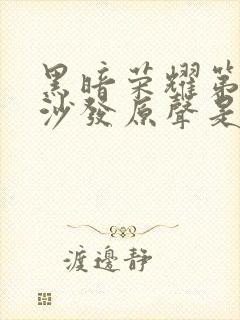 黑暗荣耀第
沙發原聲是
渡邊靜